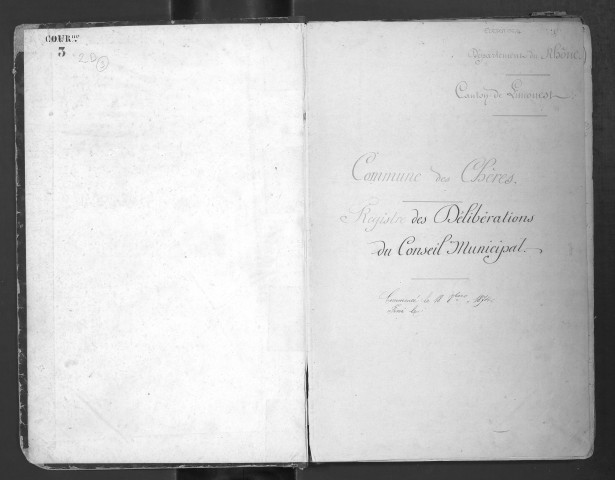 COUR.
3
2D
Département du Rhône
Canton de Limonest
Commune des Chères.
Registre des Délibérations
du Conseil Municipal.
Commencé le 11
Fini le